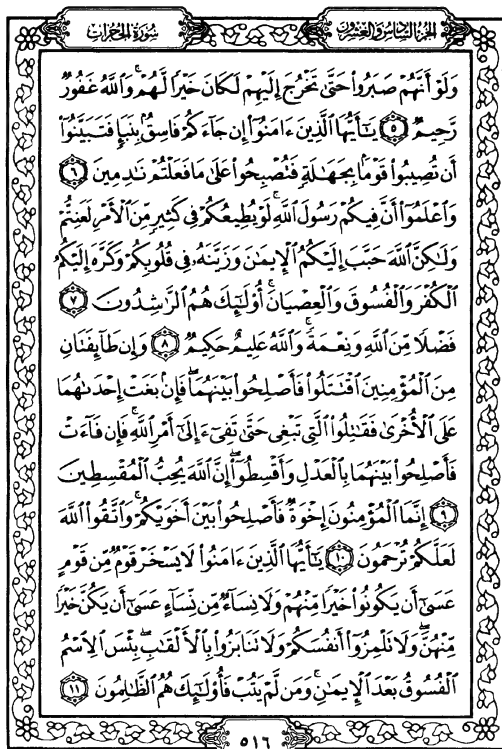 سُورَةُ الحُجُرَاتِ الجُزْءُ السَّادِسُ وَالعِشْرُونَ
وَلَوْ أَنَّهُمْ صَبَرُوا۟ حَتَّىٰ تَخْرُجَ إِلَيْهِمْ لَكَانَ خَيْرًا لَّهُمْ ۚ وَٱللَّهُ غَفُورٌ
رَّحِيمٌ ٥ يَٰٓأَيُّهَا ٱلَّذِينَ ءَامَنُوٓا۟ إِن جَآءَكُمْ فَاسِقٌۢ بِنَبَإٍ فَتَبَيَّنُوٓا۟
أَن تُصِيبُوا۟ قَوْمًۢا بِجَهَٰلَةٍ فَتُصْبِحُوا۟ عَلَىٰ مَا فَعَلْتُمْ نَٰدِمِينَ ٦
وَٱعْلَمُوٓا۟ أَنَّ فِيكُمْ رَسُولَ ٱللَّهِ ۚ لَوْ يُطِيعُكُمْ فِى كَثِيرٍ مِّنَ ٱلْأَمْرِ لَعَنِتُّمْ
وَلَٰكِنَّ ٱللَّهَ حَبَّبَ إِلَيْكُمُ ٱلْإِيمَٰنَ وَزَيَّنَهُۥ فِى قُلُوبِكُمْ وَكَرَّهَ إِلَيْكُمُ
ٱلْكُفْرَ وَٱلْفُسُوقَ وَٱلْعِصْيَانَ ۚ أُو۟لَٰٓئِكَ هُمُ ٱلرَّٰشِدُونَ ٧
فَضْلًا مِّنَ ٱللَّهِ وَنِعْمَةً ۚ وَٱللَّهُ عَلِيمٌ حَكِيمٌ ٨ وَإِن طَآئِفَتَانِ
مِنَ ٱلْمُؤْمِنِينَ ٱقْتَتَلُوا۟ فَأَصْلِحُوا۟ بَيْنَهُمَا ۖ فَإِنۢ بَغَتْ إِحْدَىٰهُمَا
عَلَى ٱلْأُخْرَىٰ فَقَٰتِلُوا۟ ٱلَّتِى تَبْغِى حَتَّىٰ تَفِىٓءَ إِلَىٰٓ أَمْرِ ٱللَّهِ ۚ فَإِن فَآءَتْ
فَأَصْلِحُوا۟ بَيْنَهُمَا بِٱلْعَدْلِ وَأَقْسِطُوٓا۟ ۖ إِنَّ ٱللَّهَ يُحِبُّ ٱلْمُقْسِطِينَ
٩ إِنَّمَا ٱلْمُؤْمِنُونَ إِخْوَةٌ فَأَصْلِحُوا۟ بَيْنَ أَخَوَيْكُمْ ۚ وَٱتَّقُوا۟ ٱللَّهَ
لَعَلَّكُمْ تُرْحَمُونَ ١٠ يَٰٓأَيُّهَا ٱلَّذِينَ ءَامَنُوا۟ لَا يَسْخَرْ قَوْمٌ مِّن قَوْمٍ
عَسَىٰٓ أَن يَكُونُوا۟ خَيْرًا مِّنْهُمْ وَلَا نِسَآءٌ مِّن نِّسَآءٍ عَسَىٰٓ أَن يَكُنَّ خَيْرًا
مِّنْهُنَّ ۖ وَلَا تَلْمِزُوٓا۟ أَنفُسَكُمْ وَلَا تَنَابَزُوا۟ بِٱلْأَلْقَٰبِ ۖ بِئْسَ ٱلِٱسْمُ
ٱلْفُسُوقُ بَعْدَ ٱلْإِيمَٰنِ ۚ وَمَن لَّمْ يَتُبْ فَأُو۟لَٰٓئِكَ هُمُ ٱلظَّٰلِمُونَ ١١
٥١٦